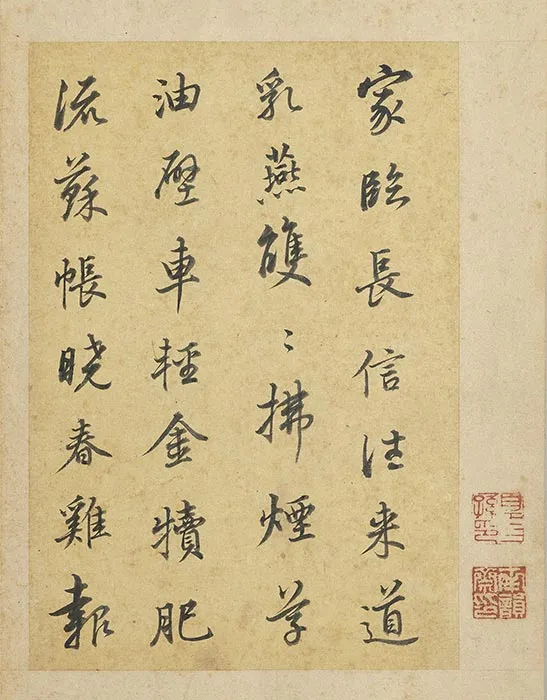 家臨長信往来道
乳燕雙〻拂煙草
油壁車輕金犢肥
流蘇帳曉春雞報
南韻齋印